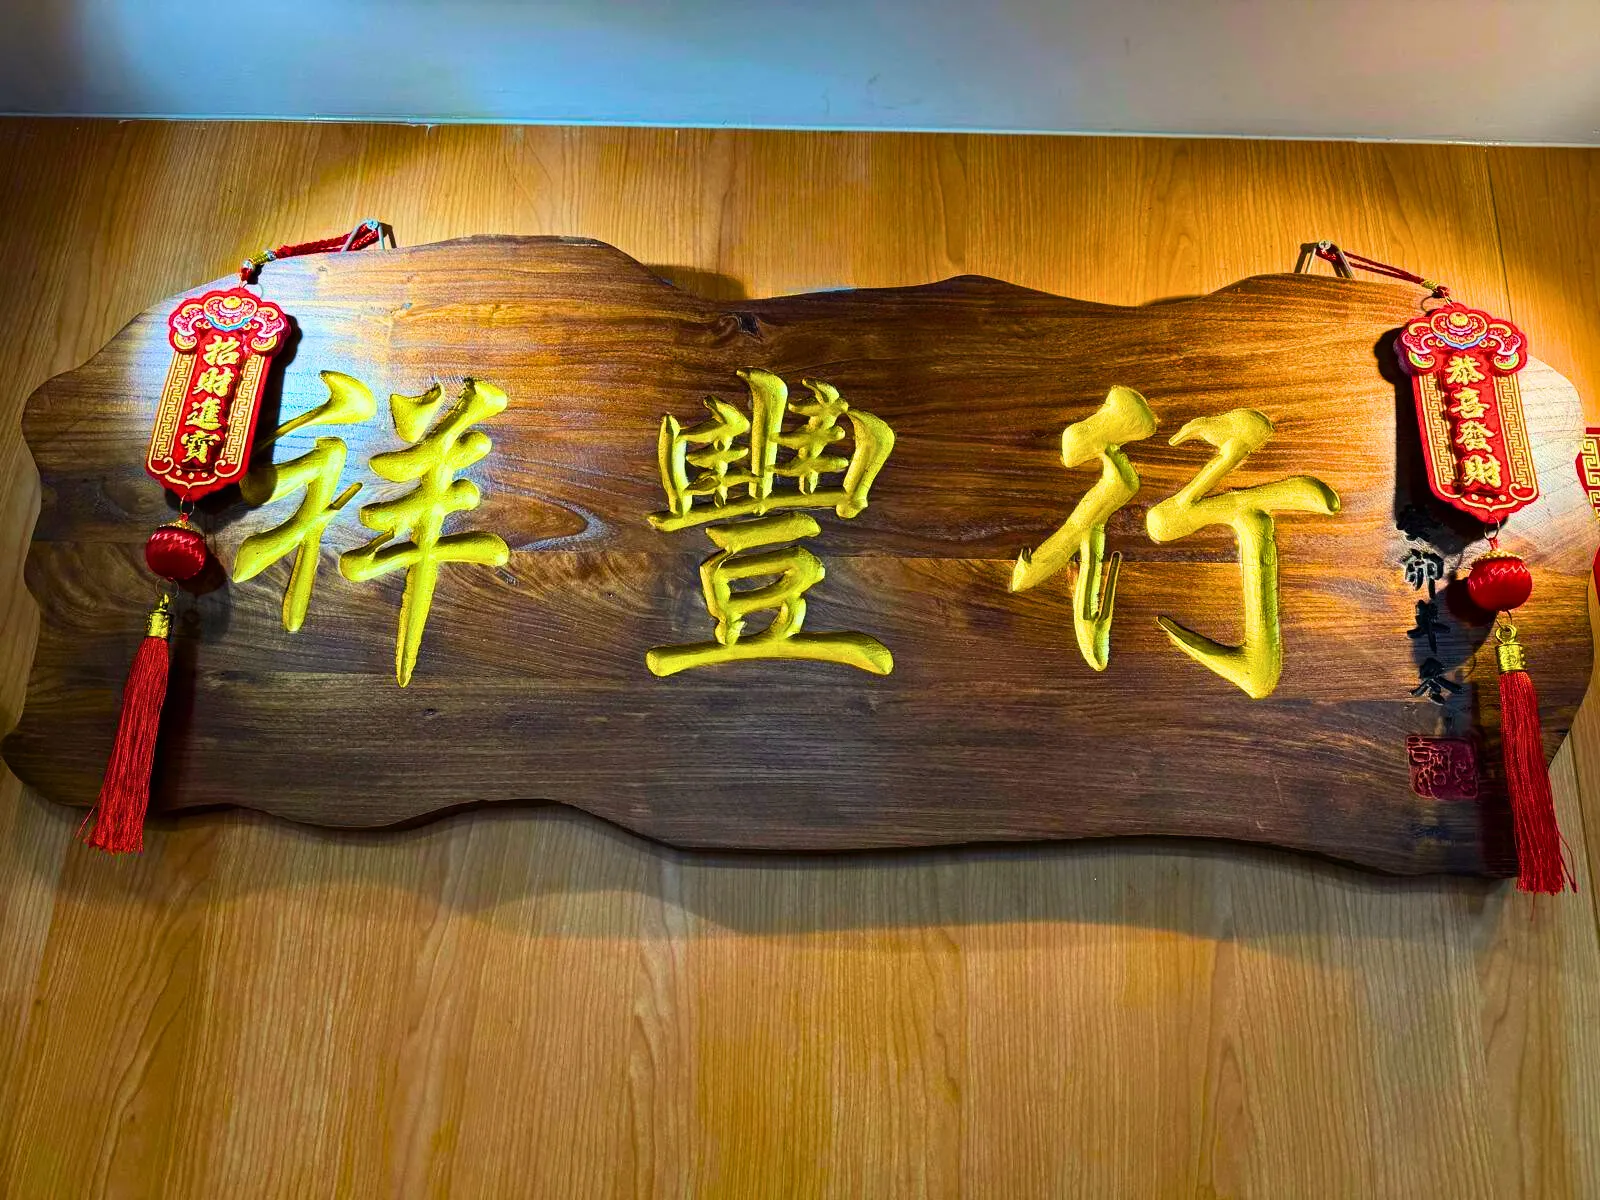 招財進寶
祥豐行
恭喜發財
癸卯年冬